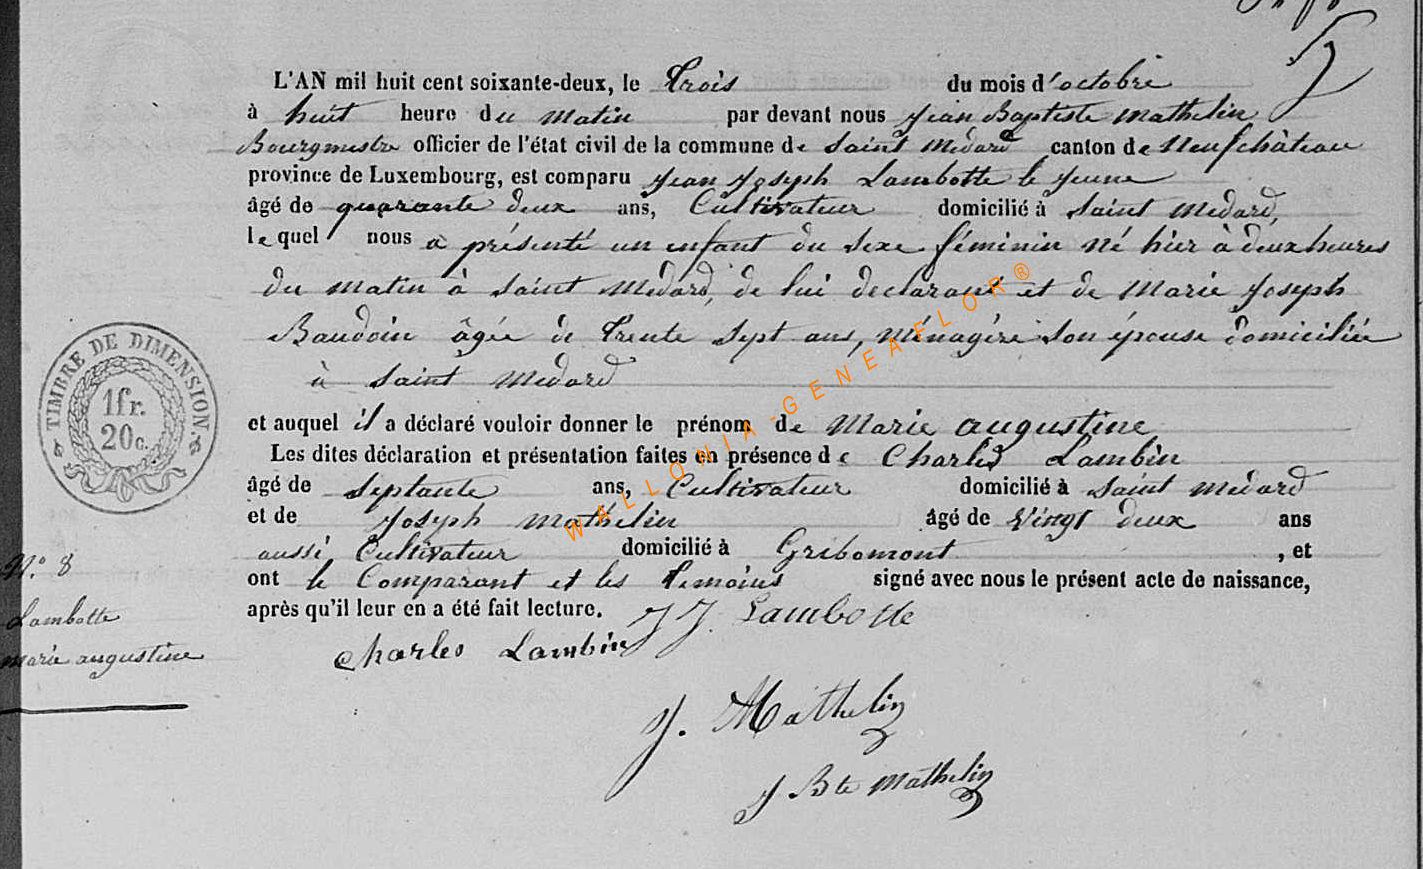 5
L'AN mil huit cent soixante-deux, le Trois du mois d'octobre
à huit heure du matin par devant nous Jean Baptiste Mathelin
Bourgmestre officier de l'état civil de la commune de Saint Médard canton de Neufchâteau
province de Luxembourg, est comparu Jean Joseph Lambotte le jeune
âgé de quarante deux ans, Cultivateur domicilié à Saint Médard,
lequel nous a présenté un enfant du sexe féminin né hier à deux heures
du matin à Saint Médard, de lui déclarant et de Marie Joseph
Baudoin âgée de trente sept ans, ménagère son épouse domiciliée
à Saint Médard
et auquel il a déclaré vouloir donner le prénom de Marie augustine
Les dites déclaration et présentation faites en présence de Charles Lambin
âgé de Septante ans, Cultivateur domicilié à Saint Médard
et de Joseph Mathelin âgé de Vingt deux ans
aussi Cultivateur domicilié à Gribomont , et
ont le Comparant et les témoins signé avec nous le présent acte de naissance,
après qu'il leur en a été fait lecture. JJ. Lambotte
Charles Lambin
J. Mathelin
J Bte Mathelin
TIMBRE DE DIMENSION.
1fr.
20c.
N.° 8
Lambotte
marie augustine
WALLONIA-GENEAFLOR®